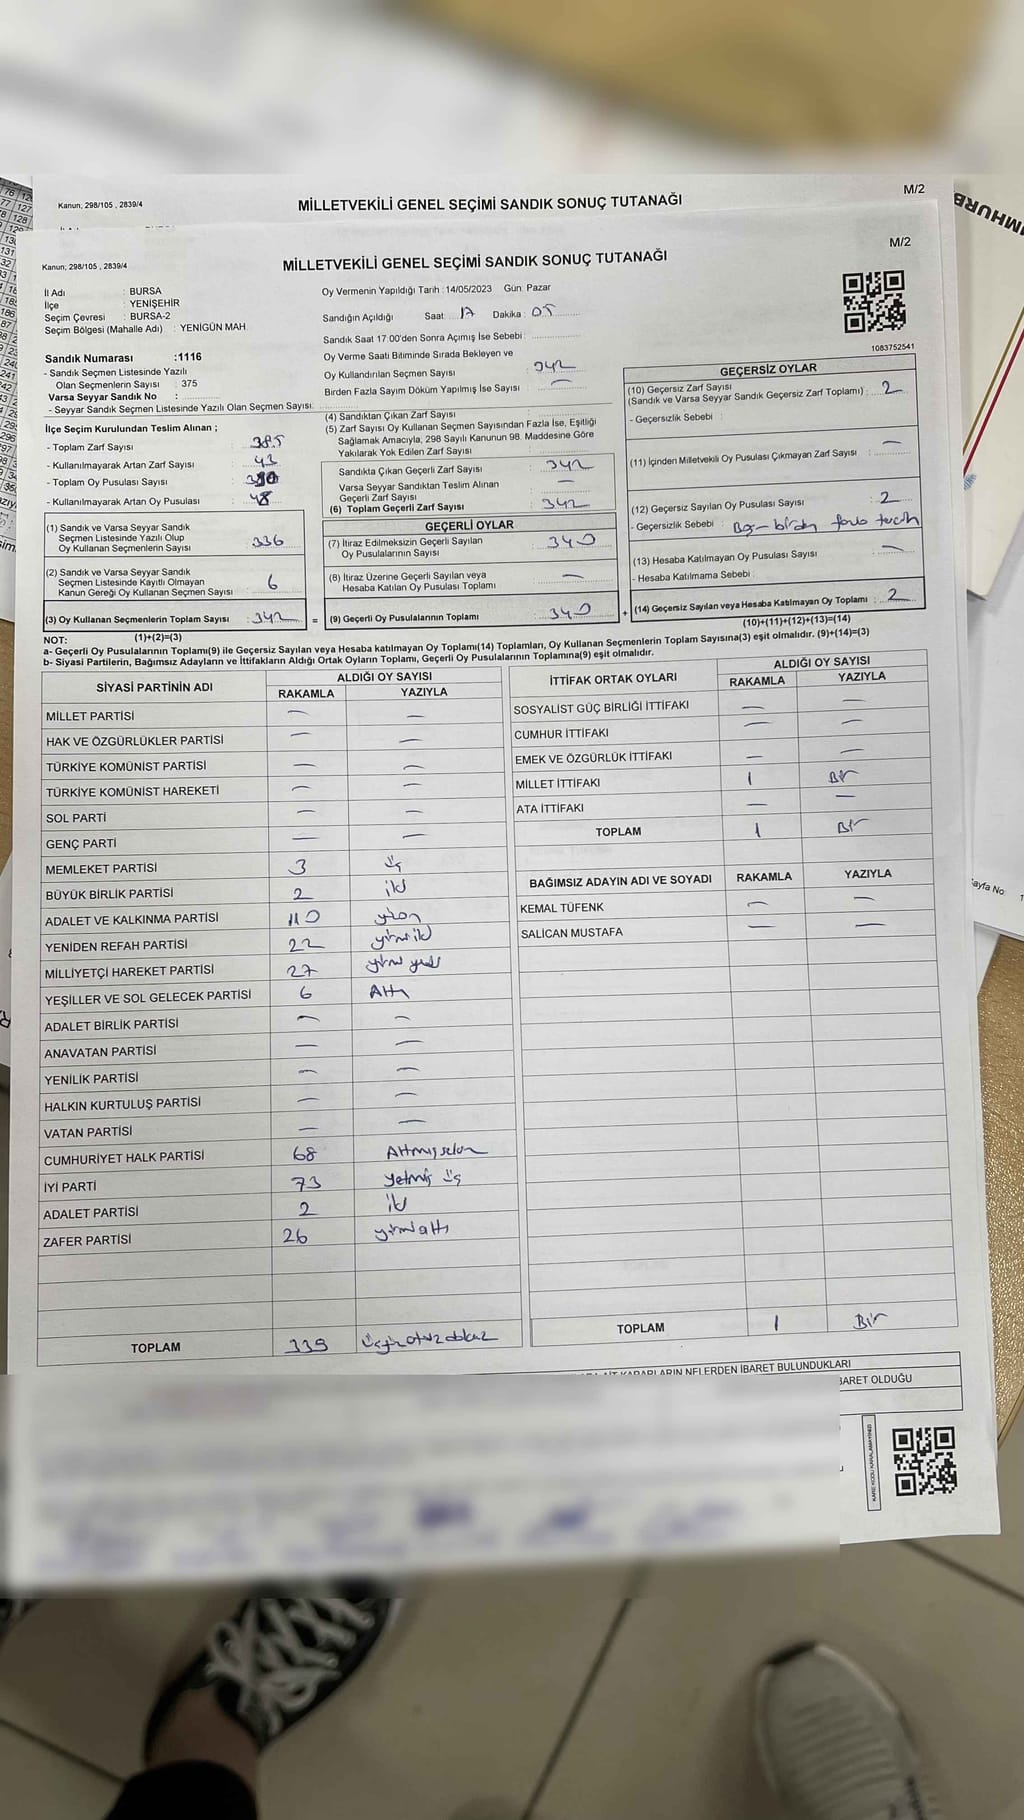 Kanun; 298/105 , 2839/4
MİLLETVEKİLİ GENEL SEÇİMİ SANDIK SONUÇ TUTANAĞI
M/2
MHURB
Kanun; 298/105 , 2839/4
MİLLETVEKİLİ GENEL SEÇİMİ SANDIK SONUÇ TUTANAĞI
M/2
İl Adı : BURSA
İlçe : YENİŞEHİR
Seçim Çevresi : BURSA-2
Seçim Bölgesi (Mahalle Adı) : YENİGÜN MAH.
Oy Vermenin Yapıldığı Tarih : 14/05/2023 Gün: Pazar
Sandığın Açıldığı Saat : 17 Dakika : 05
Sandık Saat 17:00'den Sonra Açımış İse Sebebi :
Oy Verme Saati Bitiminde Sırada Bekleyen ve
Oy Kullandırılan Seçmen Sayısı : 342
Birden Fazla Sayım Döküm Yapılmış İse Sayısı : —
1083752541
Sandık Numarası :1116
- Sandık Seçmen Listesinde Yazılı
Olan Seçmenlerin Sayısı : 375
Varsa Seyyar Sandık No :
- Seyyar Sandık Seçmen Listesinde Yazılı Olan Seçmen Sayısı:
İlçe Seçim Kurulundan Teslim Alınan ;
- Toplam Zarf Sayısı : 385
- Kullanılmayarak Artan Zarf Sayısı : 43
- Toplam Oy Pusulası Sayısı :
- Kullanılmayarak Artan Oy Pusulası : 48
(1) Sandık ve Varsa Seyyar Sandık
Seçmen Listesinde Yazılı Olup
Oy Kullanan Seçmenlerin Sayısı : 336
(2) Sandık ve Varsa Seyyar Sandık
Seçmen Listesinde Kayıtlı Olmayan
Kanun Gereği Oy Kullanan Seçmen Sayısı : 6
(3) Oy Kullanan Seçmenlerin Toplam Sayısı : 342 =
(1)+(2)=(3)
(4) Sandıktan Çıkan Zarf Sayısı :
(5) Zarf Sayısı Oy Kullanan Seçmen Sayısından Fazla İse, Eşitliği
Sağlamak Amacıyla, 298 Sayılı Kanunun 98. Maddesine Göre
Yakılarak Yok Edilen Zarf Sayısı :
Sandıkta Çıkan Geçerli Zarf Sayısı : 342
Varsa Seyyar Sandıktan Teslim Alınan
Geçerli Zarf Sayısı : —
(6) Toplam Geçerli Zarf Sayısı : 342
GEÇERLİ OYLAR
(7) İtiraz Edilmeksizin Geçerli Sayılan
Oy Pusulalarının Sayısı : 340
(8) İtiraz Üzerine Geçerli Sayılan veya
Hesaba Katılan Oy Pusulası Toplamı : —
(9) Geçerli Oy Pusulalarının Toplamı : 340 +
GEÇERSİZ OYLAR
(10) Geçersiz Zarf Sayısı
(Sandık ve Varsa Seyyar Sandık Geçersiz Zarf Toplamı) : 2
- Geçersizlik Sebebi :
(11) İçinden Milletvekili Oy Pusulası Çıkmayan Zarf Sayısı : —
(12) Geçersiz Sayılan Oy Pusulası Sayısı : 2
- Geçersizlik Sebebi : Boş - birden fazla tercih
(13) Hesaba Katılmayan Oy Pusulası Sayısı : —
- Hesaba Katılmama Sebebi :
(14) Geçersiz Sayılan veya Hesaba Katılmayan Oy Toplamı : 2
(10)+(11)+(12)+(13)=(14)
NOT:
a- Geçerli Oy Pusulalarının Toplamı(9) ile Geçersiz Sayılan veya Hesaba katılmayan Oy Toplamı(14) Toplamları, Oy Kullanan Seçmenlerin Toplam Sayısına(3) eşit olmalıdır. (9)+(14)=(3)
b- Siyasi Partilerin, Bağımsız Adayların ve İttifakların Aldığı Ortak Oyların Toplamı, Geçerli Oy Pusulalarının Toplamına(9) eşit olmalıdır.
SİYASİ PARTİNİN ADI ALDIĞI OY SAYISI
RAKAMLA YAZIYLA
MİLLET PARTİSİ — —
HAK VE ÖZGÜRLÜKLER PARTİSİ — —
TÜRKİYE KOMÜNİST PARTİSİ — —
TÜRKİYE KOMÜNİST HAREKETİ — —
SOL PARTİ — —
GENÇ PARTİ — —
MEMLEKET PARTİSİ 3 üç
BÜYÜK BİRLİK PARTİSİ 2 iki
ADALET VE KALKINMA PARTİSİ 110 yüzon
YENİDEN REFAH PARTİSİ 22 yirmiiki
MİLLİYETÇİ HAREKET PARTİSİ 27 yirmi yedi
YEŞİLLER VE SOL GELECEK PARTİSİ 6 Altı
ADALET BİRLİK PARTİSİ — —
ANAVATAN PARTİSİ — —
YENİLİK PARTİSİ — —
HALKIN KURTULUŞ PARTİSİ — —
VATAN PARTİSİ — —
CUMHURİYET HALK PARTİSİ 68 Altmışsekiz
İYİ PARTİ 73 Yetmiş üç
ADALET PARTİSİ 2 iki
ZAFER PARTİSİ 26 yirmialtı
TOPLAM 339 üçyüzotuzdokuz
İTTİFAK ORTAK OYLARI ALDIĞI OY SAYISI
RAKAMLA YAZIYLA
SOSYALİST GÜÇ BİRLİĞİ İTTİFAKI — —
CUMHUR İTTİFAKI — —
EMEK VE ÖZGÜRLÜK İTTİFAKI — —
MİLLET İTTİFAKI 1 Bir
ATA İTTİFAKI — —
TOPLAM 1 Bir
BAĞIMSIZ ADAYIN ADI VE SOYADI RAKAMLA YAZIYLA
KEMAL TÜFENK — —
SALİCAN MUSTAFA — —
TOPLAM 1 Bir
KARARLARIN NELERDEN İBARET BULUNDUKLARI
BARET OLDUĞU
KARE KODU KARALAMAYINIZ
Sayfa No: 1